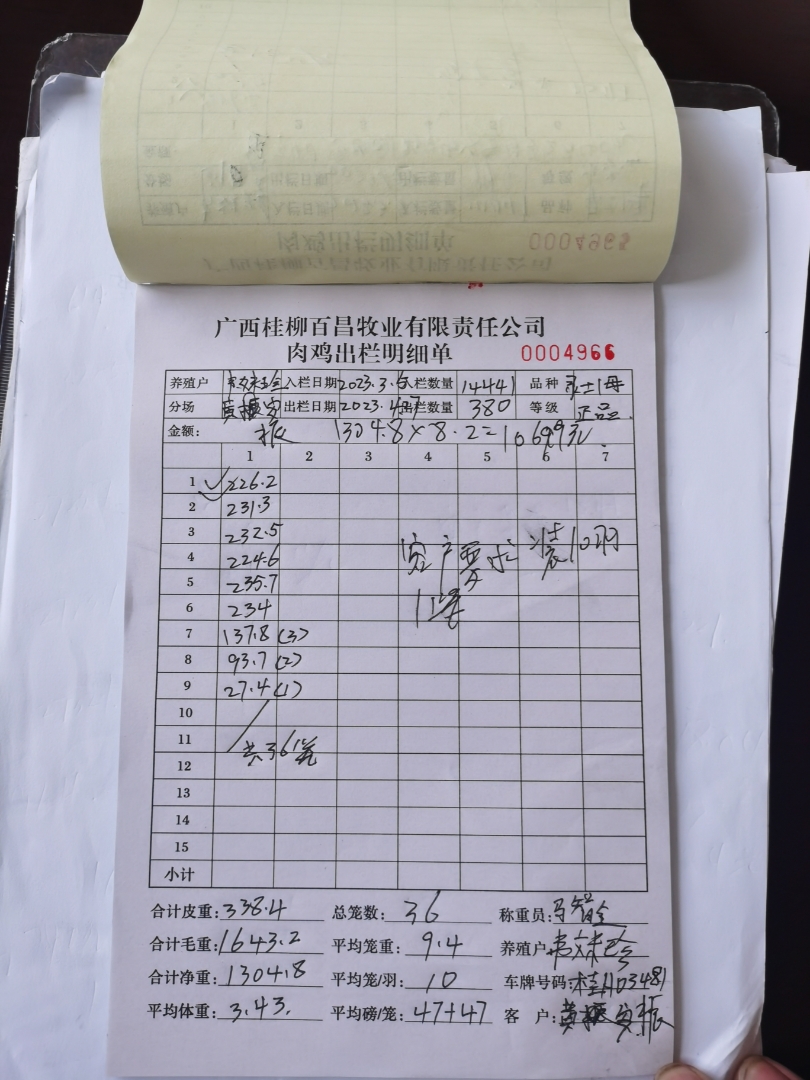 广西桂柳百昌牧业有限责任公司
肉鸡出栏明细单 0004966
养殖户 入栏日期 2023.3. 入栏数量 14441 品种
分场 出栏日期 2023.4. 出栏数量 380 等级 正品
金额: 1304.8×8.2=10699元
1 2 3 4 5 6 7
1 226.2
2 231.3
3 232.5
4 224.6
5 235.7
6 234
7 137.8 (3)
8 93.7 (2)
9 27.4 (1)
客户要求装10羽
10
11
共36笼
12
13
14
15
小计
合计皮重: 338.4 总笼数: 36 称重员:
合计毛重: 1643.2 平均笼重: 9.4 养殖户
合计净重: 1304.8 平均笼/羽: 10 车牌号码: 桂A03481
平均体重: 3.43. 平均磅/笼: 47+47 客户: